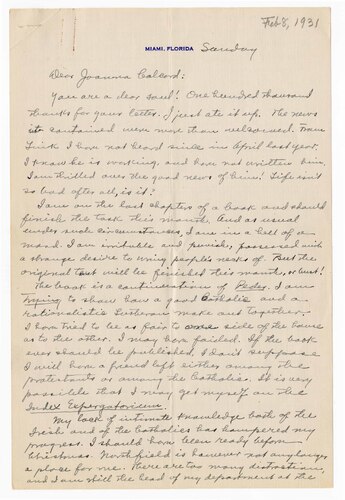 Feb 8, 1931
MIAMI, FLORIDA Sunday
Dear Joanna Colcord:
You are a dear soul! One hundred thousand
thanks for your letter. I just ate it up. The news
it contained were more than welcomed. From
Link I have not heard since in April last year.
I know he is working and have not written him.
I am thrilled over the good news of him! Life isn't
so bad after all, is it?
I am on the last chapters of a book and should
finish the task this month. And as usual
under such circumstances, I am in a hell of a
mood. I am irritable and punish, possessed with
a strange desire to wring people's necks off. But the
original text will be finished this month, or bust!
The book is a continuation of Peder. I am
trying to show how a good Catholic and a
rationalistic Lutheran make out together.
I have tried to be as fair to one side of the house
as to the other. I may have failed. If the book
ever should be published, I don't suppose
I will have a friend left either among the
protestants or among the Catholics. It is very
possible that I may get myself on the
Index Expurgatorium.
My lack of intimate knowledge both of the
Irish and of the Catholics has hampered my
progress. I should have been ready before
Christmas. Northfield is however not any longer
a place for me. There are too many distractions,
and I am still the head of my department at the